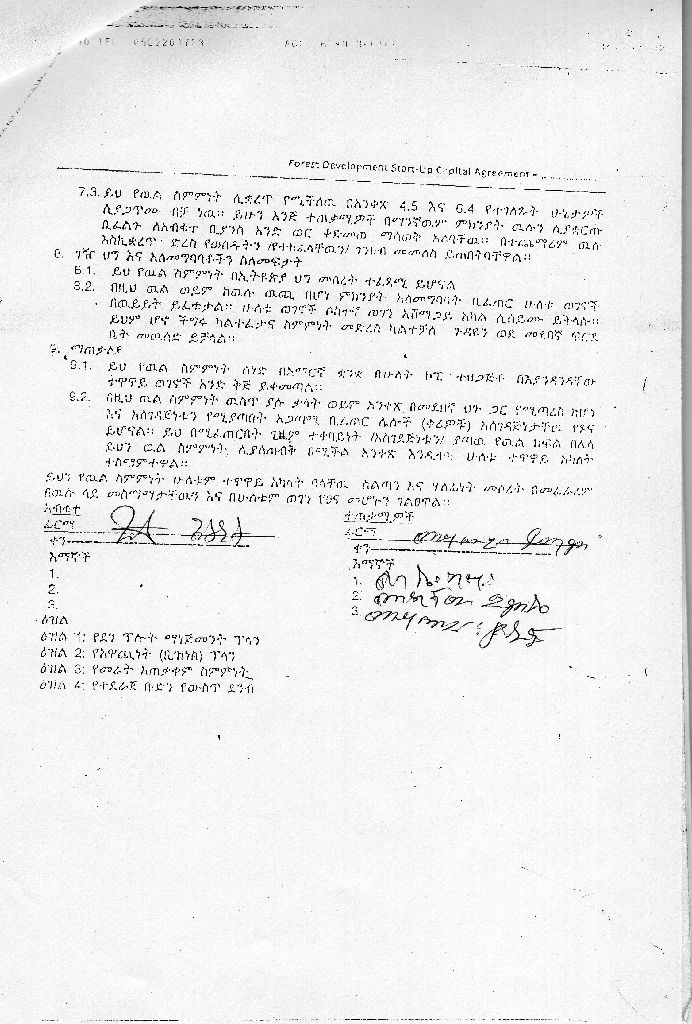 Forest Development Start-Up Capital Agreement -
7.3. ይህ የዉል ስምምነት ሊቋረጥ የሚችለዉ በአንቀጽ 4.5 እና 6.4 የተገለጹት ሁኔታዎች
ሲያጋጥሙ ብቻ ነዉ። ይሁን እንጅ ተጠቃሚዎች በማንኛዉም ምክንያት ዉሉን ሊያቋርጡ
ቢፈልጉ ለአብቁተ ቢያንስ አንድ ወር ቀድመዉ ማሳወቅ አለባቸዉ። በተጨማሪም ዉሉ
እስኪቋረጥ ድረስ የወሰዱትን /የተከፈላቸዉን/ ገንዘብ መመለስ ይጠበቅባቸዋል።
8. ገዥ ህግ እና አለመግባባቶችን ስለመፍታት
8.1. ይህ የዉል ስምምነት በኢትዮጵያ ህግ መሰረት ተፈጻሚ ይሆናል
8.2. በዚህ ዉል ወይም ከዉሉ ዉጪ በሆነ ምክንያት አለመግባባት ቢፈጠር ሁለቱ ወገኖች
በዉይይት ይፈቱታል። ሁለቱ ወገኖች ሶስተኛ ወገን አሸማጋይ አካል ሊሰይሙ ይችላሉ።
ይህም ሆኖ ችግሩ ካልተፈታና ስምምነት መድረስ ካልተቻለ ጉዳዩን ወደ መደበኛ ፍርድ
ቤት መዉሰድ ይቻላል።
9. ማጠቃለያ
9.1. ይህ የዉል ስምምነት ሰነድ በአማርኛ ቋንቋ በሁለት ኮፒ ተዘጋጅቶ በእያንዳንዳቸው
ተዋዋይ ወገኖች አንድ ቅጅ ይቀመጣል።
9.2. በዚህ ዉል ስምምነት ዉስጥ ያሉ ቃላት ወይም አንቀጽ በመደበኛ ህጉ ጋር የሚጣረስ ከሆነ
እና አስገዳጅነቱን የሚያጣበት አጋጣሚ ቢፈጠር ሌሎች (ቀሪዎቹ) አስገዳጅነታቸዉ የፀና
ይሆናል። ይህ በሚፈጠርበት ጊዜም ተቀባይነት /አስገዳጅነቱን/ ያጣዉ የዉል ክፍል በሌላ
ይህን ዉል ስምምነት ሊያስጠብቅ በሚችል አንቀጽ እንዲተካ ሁለቱ ተዋዋይ አካላት
ተስማምተዋል።
ይህን የዉል ስምምነት ሁለቱም ተዋዋይ አካላት ባላቸዉ ስልጣን እና ሃላፊነት መሰረት በመፈራረም
በዉሉ ላይ መስማማታቸዉን እና በሁለቱም ወገን የፀና መሆኑን ገልፀዋል።
አብቁተ
ፊርማ
ቀን
እማኞች
1.
2.
3.
ተጠቃሚዎች
ፊርማ
ቀን
እማኞች
1.
2.
3.
ዕዝል
ዕዝል 1: የደን ፕሎት ማነጅመንት ፕላን
ዕዝል 2: የአዋጪነት (ቢዝነስ) ፕላን
ዕዝል 3: የመሬት አጠቃቀም ስምምነት
ዕዝል 4: የተደራጀ ቡድን የውስጥ ደንብ